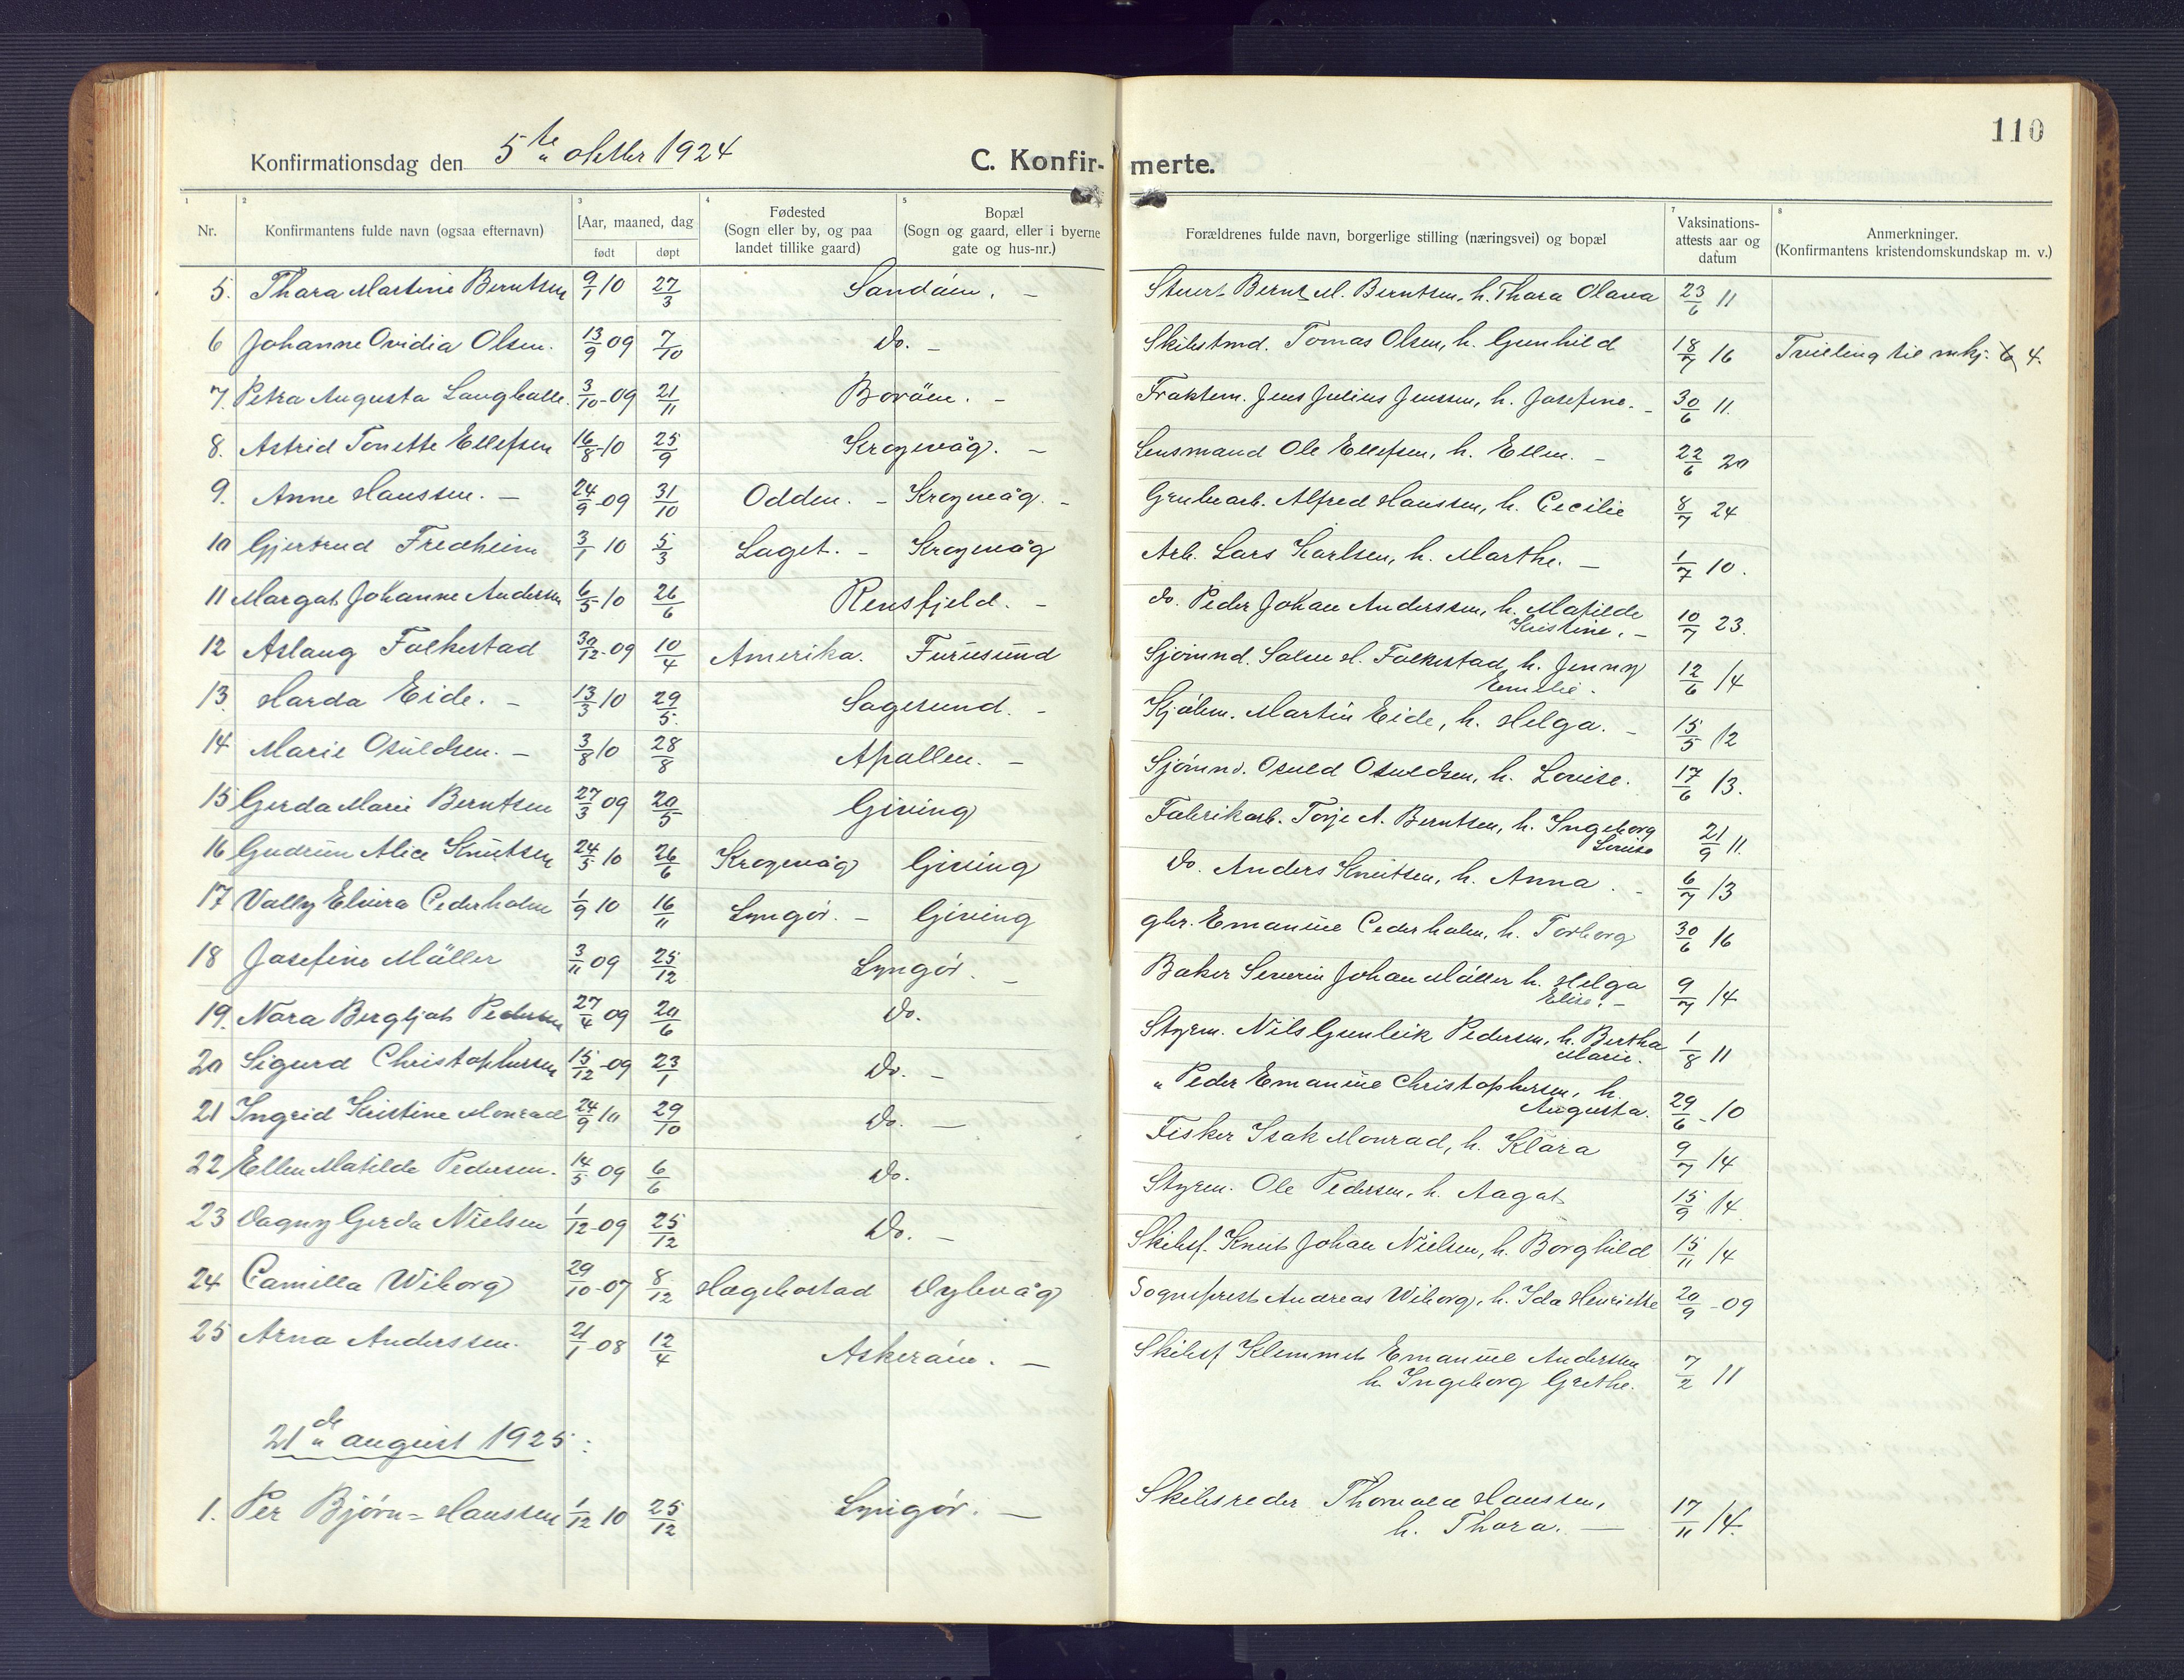 110
Konfirmationsdag den 5te oktbr 1924
C. Konfirmerte.
1 2 3 4 5 7 8
Nr. Konfirmantens fulde navn (ogsaa efternavn) Aar, maaned, dag født døpt Fødested (Sogn eller by, og paa landet tillike gaard) Bopæl (Sogn og gaard, eller i byerne gate og hus-nr.) Forældrenes fulde navn, borgerlige stilling (næringsvei) og bopæl Vaksinations-attests aar og datum Anmerkninger. (Konfirmantens kristendomskundskap m. v.)
5. Thara Martine Berntsen 9/1 10 27/3 Sandøen. - Stuert Bernt M. Berntsen, h. Thara Olava 23/6 11
6 Johanne Ovidia Olsen. 13/9 09 7/10 do. - Skibstmd. Tomas Olsen, h. Gunhild 18/7 16 Tvilling til mkj. 4.
7. Petra Augusta Langballe. 3/10-09 21/11 Borøen. - Fraktem. Jens Julius Jenssen, h. Josefine. - 30/6 11.
8. Astrid Tonette Ellefsen 16/8-10 25/9 Krogevåg. - Lensmand Ole Ellefsen, h. Ellen. - 22/6 20
9. Anne Hanssen. - 24/9-09 31/10 Odden. - Krogevåg. - Grubearb. Alfred Hanssen, h. Cecilie 8/7 24
10 Gjertrud Fredheim 3/1 10 5/3 Laget. - Krogevåg Arb. Lars Karlsen, h. Marthe. - 1/7 10.
11 Margat Johanne Anderssen 6/5-10 26/6 Rensfjeld. - do. Peder Johan Anderssen, h. Matilde Kristine. - 10/7 23.
12 Aslaug Falkestad 30/12-09 10/4 Amerika. Furusund Sjømnd. Salve H. Falkestad, h. Jenny Emilie. 12/6 14
13. Harda Eide. - 13/3 10 29/5. Sagesund. - Kjøbm. Martin Eide, h. Helga. - 15/5 12
14 Marie Osuldsen. - 3/8 10 28/8 Apallen. - Sjømnd. Osuld Osuldsen, h. Lovise. 17/6 13.
15 Gerda Marie Berntsen 27/3 09 20/5 Giving Fabrikarb. Torje A. Berntsen, h. Ingeborg Lovise 21/9 11.
16 Gudrun Alice Knutsen 24/5 10 26/6 Krogevåg Giving do. Anders Knutsen, h. Anna. - 6/7 13
17 Vally Elvira Cederholm 1/9 10 16/11 Lyngør. - Giving gbr. Emanuel Cederholm, h. Torborg 30/6 16
18 Josefine Møller 3/11 09 25/12 Lyngør. - Baker Severin Johan Møller h. Helga Elise. - 9/7 14
19. Nora Bergljot Pedersen 27/4 09 20/6 do. Styrm. Nils Gunleik Pedersen, h. Bertha Marie. 1/8 11
20 Sigurd Christophersen 15/12-09 23/1 do. - " Peder Emanuel Christophersen, h. Augusta. 29/6-10
21 Ingrid Kristine Monrad 24/9 10 29/10 do. - Fisker Isak Monrad, h. Klara 9/7 14
22 Ellen Matilde Pedersen. 14/5-09 6/6 do. Styrm. Ole Pedersen, h. Aagat 15/9 14
23 Dagny Gerda Nielsen 1/12-09 25/12 do. - Skibsf. Knut Johan Nielsen, h. Borghild 15/11 14
24 Camilla Wiborg 29/10-07 8/12 Hægebostad Dybvåg Sogneprest Andreas Wiborg, h. Ida Henriette 20/9-09
25 Arna Anderssen. 21/1-08 12/4 Askerøen. - Skibsf Klemmet Emanuel Anderssen h. Ingeborg Grethe. 7/2 11
21de august 1925:
1. Per Bjørn=Hanssen 1/12 10 25/12 Lyngør. - Skibsreder Thorvald Hanssen, h. Thora. - 17/11 14.